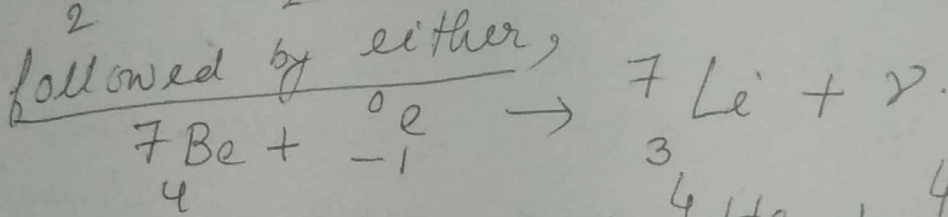 2
followed by either,
⁷₄Be + ⁰₋₁e → ⁷₃Li + ν.
4 4